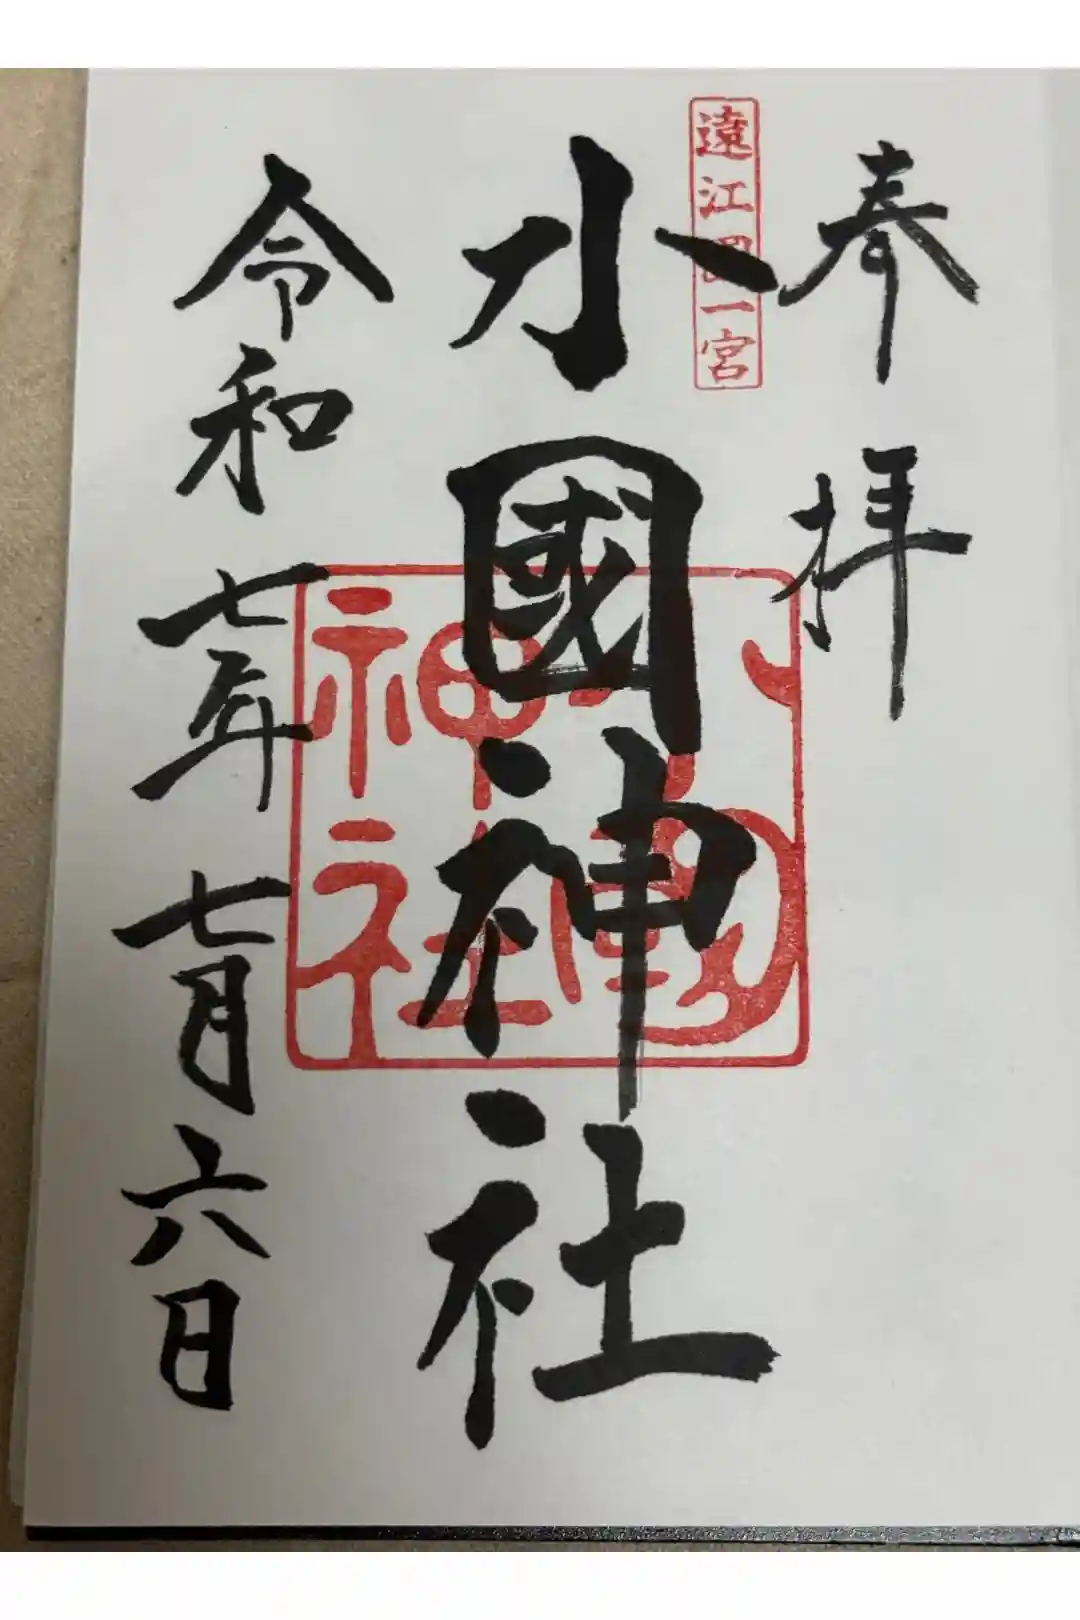 奉拝
遠江國一宮
小國神社
小國神社
令和七年七月六日